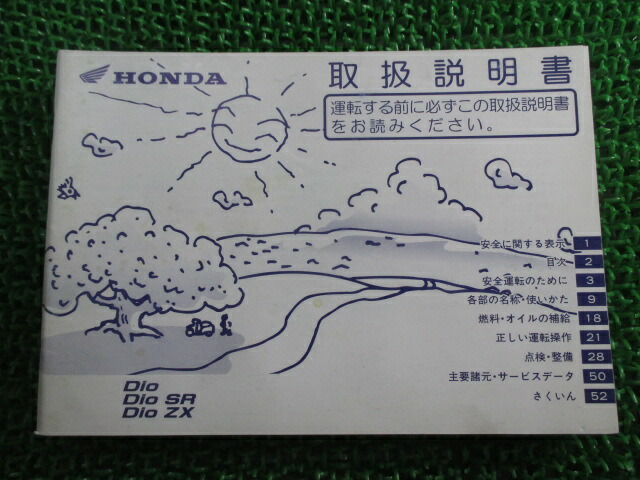 HONDA
取扱説明書
運転する前に必ずこの取扱説明書
をお読みください。
安全に関する表示 1
目次 2
安全運転のために 3
各部の名称・使いかた 9
燃料・オイルの補給 18
正しい運転操作 21
点検・整備 28
主要諸元・サービスデータ 50
さくいん 52
Dio
Dio SR
Dio ZX